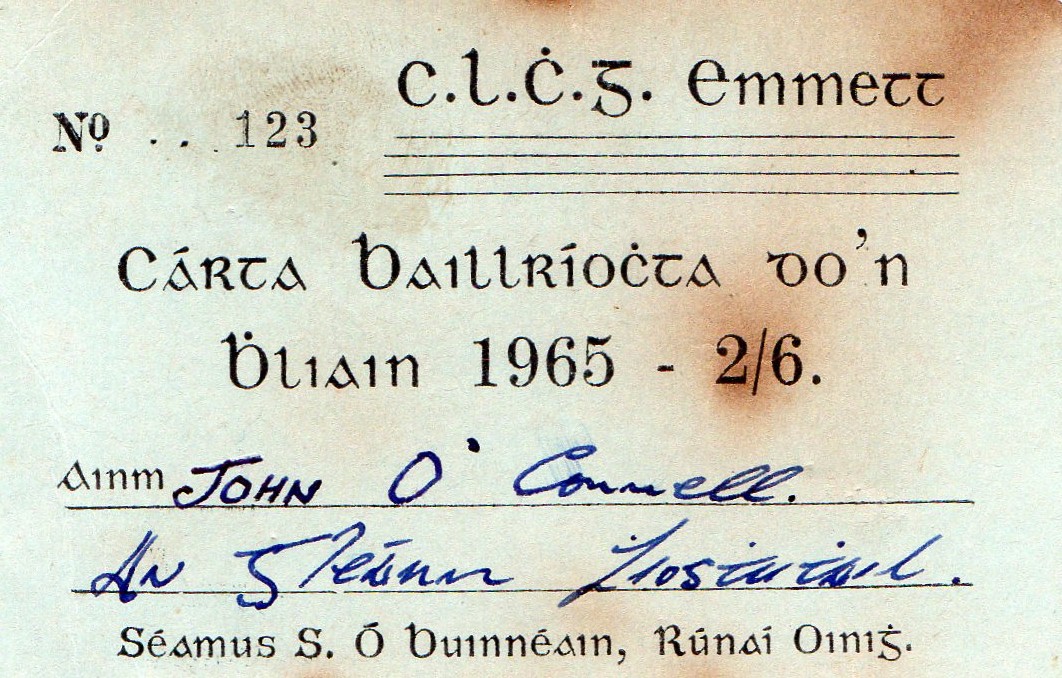 C.L.Ċ.G. Emmett
Nº ... 123
Cárta Baillríoċta do'n
Ḃliain 1965 - 2/6.
Ainm JOHN O' Connell.
An Gleann
Séamus S. Ó Buinnéain, Rúnaí Oiniġ.